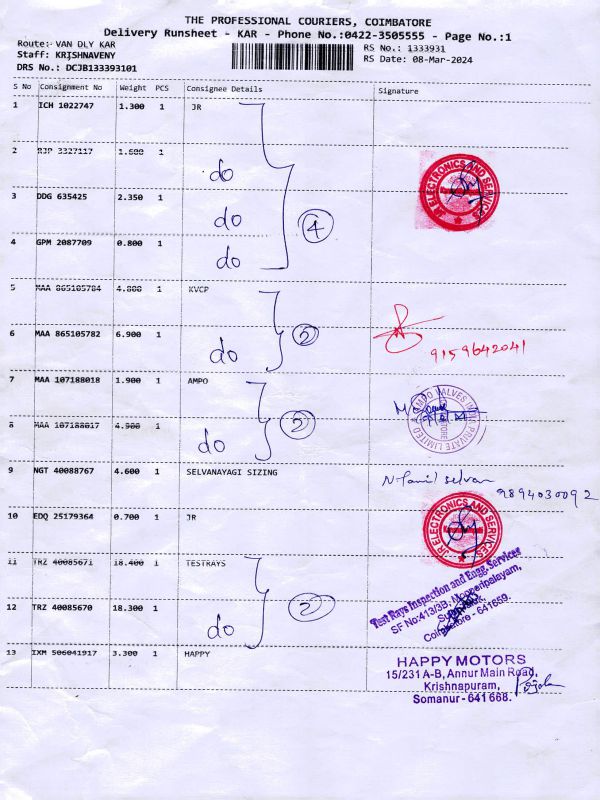 THE PROFESSIONAL COURIERS, COIMBATORE
Delivery Runsheet - KAR - Phone No.:0422-3505555 - Page No.:1
Route:- VAN DLY KAR
RS No.: 1333931
Staff: KRISHNAVENY
RS Date: 08-Mar-2024
DRS No.: DCJB133393101
S No Consignment No Weight PCS Consignee Details Signature
1 ICH 1022747 1.300 1 JR
2 RJP 3327117 1.600 1 do
3 DDG 635425 2.350 1 do
4 GPM 2087709 0.800 1 do
4
ELECTRONICS AND SERVICES
5 MAA 865105784 4.800 1 KVCP
6 MAA 865105782 6.900 1 do
2
9159642041
7 MAA 107188018 1.900 1 AMPO
8 MAA 107188017 4.900 1 do
2
AMPO VALVES INDIA PRIVATE LIMITED
9 NGT 40088767 4.600 1 SELVANAYAGI SIZING
N. Tamil selvan
9894030092
10 EDQ 25179364 0.700 1 JR
JR ELECTRONICS AND SERVICES
11 TRZ 40085671 18.400 1 TESTRAYS
12 TRZ 40085670 18.300 1 do
2
Test Rays Inspection and Engg. Services
SF No:413/3B, Mooperipalayam,
Coimbatore - 641659.
13 IXM 506041917 3.300 1 HAPPY
HAPPY MOTORS
15/231 A-B, Annur Main Road,
Krishnapuram,
Somanur - 641 668.